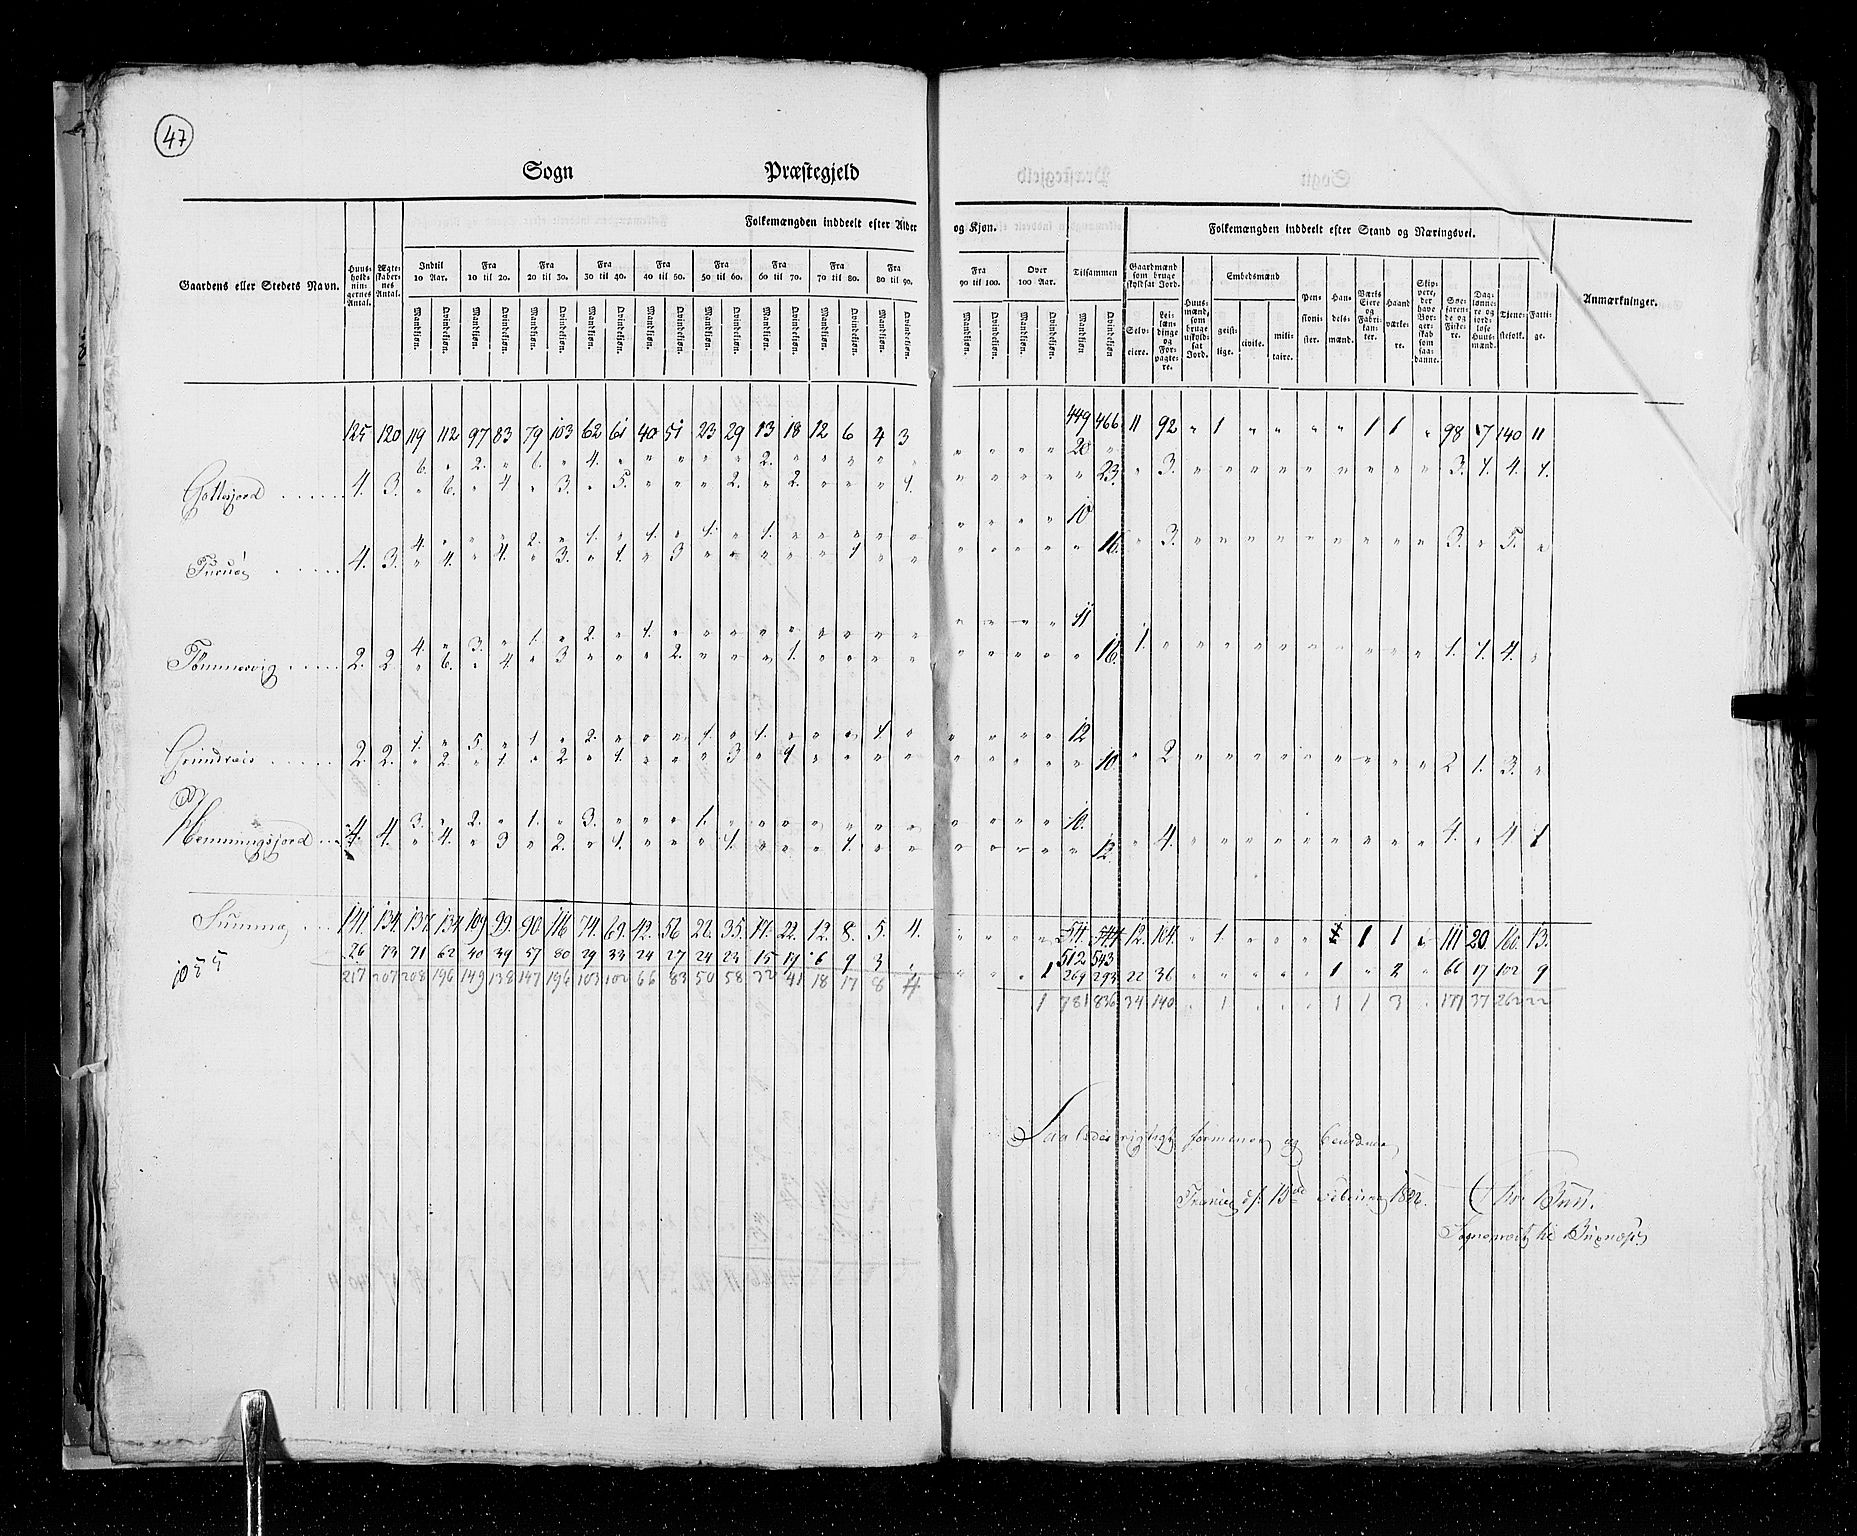 47
Sogn Præstegjeld
Folkemængden inddeelt efter Alder og Kjøn. Folkemængden inddeelt efter Stand og Næringsvei.
Gaardens eller Stedets Navn. Huus-holdnin-gernes Antal. Ægte-skaber-nes Antal. Indtil 10 Aar. Fra 10 til 20. Fra 20 til 30. Fra 30 til 40. Fra 40 til 50. Fra 50 til 60. Fra 60 til 70. Fra 70 til 80. Fra 80 til 90. Fra 90 til 100. Over 100 Aar. Tilsammen Gaardmænd som bruge skyldsat Jord. Huus-mænd, som bruge uskyld-sat Jord. Embedsmænd Pen-sioni-ster. Han-dels-mænd. Værks Eiere og Fabri-kan-ter. Haand værke-re. Skip-pere, der have Bor-ger-skab som saa-danne. Søe-farende og Fiske-re. Dag-lønne-re og jord-løse Huus-mænd. Tjene-stefolk. Fatti-ge. Anmærkninger.
Mandkjøn. Qvindekjøn. Mandkjøn. Qvindekjøn. Mandkjøn. Qvindekjøn. Mandkjøn. Qvindekjøn. Mandkjøn. Qvindekjøn. Mandkjøn. Qvindekjøn. Mandkjøn. Qvindekjøn. Mandkjøn. Qvindekjøn. Mandkjøn. Qvindekjøn. Mandkjøn. Qvindekjøn. Mandkjøn. Qvindekjøn. Mandkjøn Qvindekjøn Selv-eiere. Lei-læn-dinge og For-pagte-re. geist-lige. civile. mili-taire.
125 120 119 112 97 83 79 103 62 61 40 51 23 29 13 18 12 6 4 3 449 466 11 92 " 1 " " " " 1 1 " 98 17 140 11
6. " 2. " 6. " 4. " " " " " 2. " " " " " " " " " 20 "
4. 3. " 6. " 4 " 3. " 5. " " " 2. " 2. " " " 1. " " " " " 23. " 3. " " " " " " " " " 3. 1. 4. 1.
4. " " " 2. " 1. " 1. " 1. " 1. " " " " " " " " " 10
Furuøe 4. 3. " 4. " 4. " 3. " 1. " 3 " " " " " 1 " " " " " " " 16. " 3. " " " " " " " " " 3. " 5. "
4. " 3. " 1. " 2. " 1. " " " " " " " " " " " " " 11
Tømmervig 2. 2. " 6. " 4. " 3 " " " 2. " " " 1. " " " " " " " " " 16. 1. " " " " " " " " " " 1. 1. 4. "
1. " 5. " 1. " 2. " " " 1. " 1. " " " 1. " " " " " 12
2. 2. " 2. " 1 " 2 " 1. " " " 3 " 1 " " " " " " " " " 10. " 2 " " " " " " " " " 2 1. 3. "
3. " 2. " 1. " 3. " " " 1. " " " " " " " " " " " 10.
Hemmingsjord 4. 4. " 4. " 3 " 2. " 1. " " " 1. " " " 1. " " " " " " " 12. " 4. " " " " " " " " " 4. " 4 1
Summa 141. 134. 137. 134. 109. 99. 90. 116 74. 69. 42. 56 26. 35. 17. 22. 12. 8. 5. 4. 12. 104. " 1. " " " 1 1 111 20 160. 13.
512 543
1055 76 73 71 62 40 39 57 80 29 33 24 27 24 23 15 19 6 9 3 " " " " 1 269 293 22 36 " " " " " 1 " 2 " 66 17 102 9
217 207 208 196 149 138 147 196 103 102 66 83 50 58 32 41 18 17 8 4 1 781 836 34 140 " 1 " " " 1 1 3 " 177 37 262 22
Saaledes rigtigt formenes og bevidnes
Februar 1826.